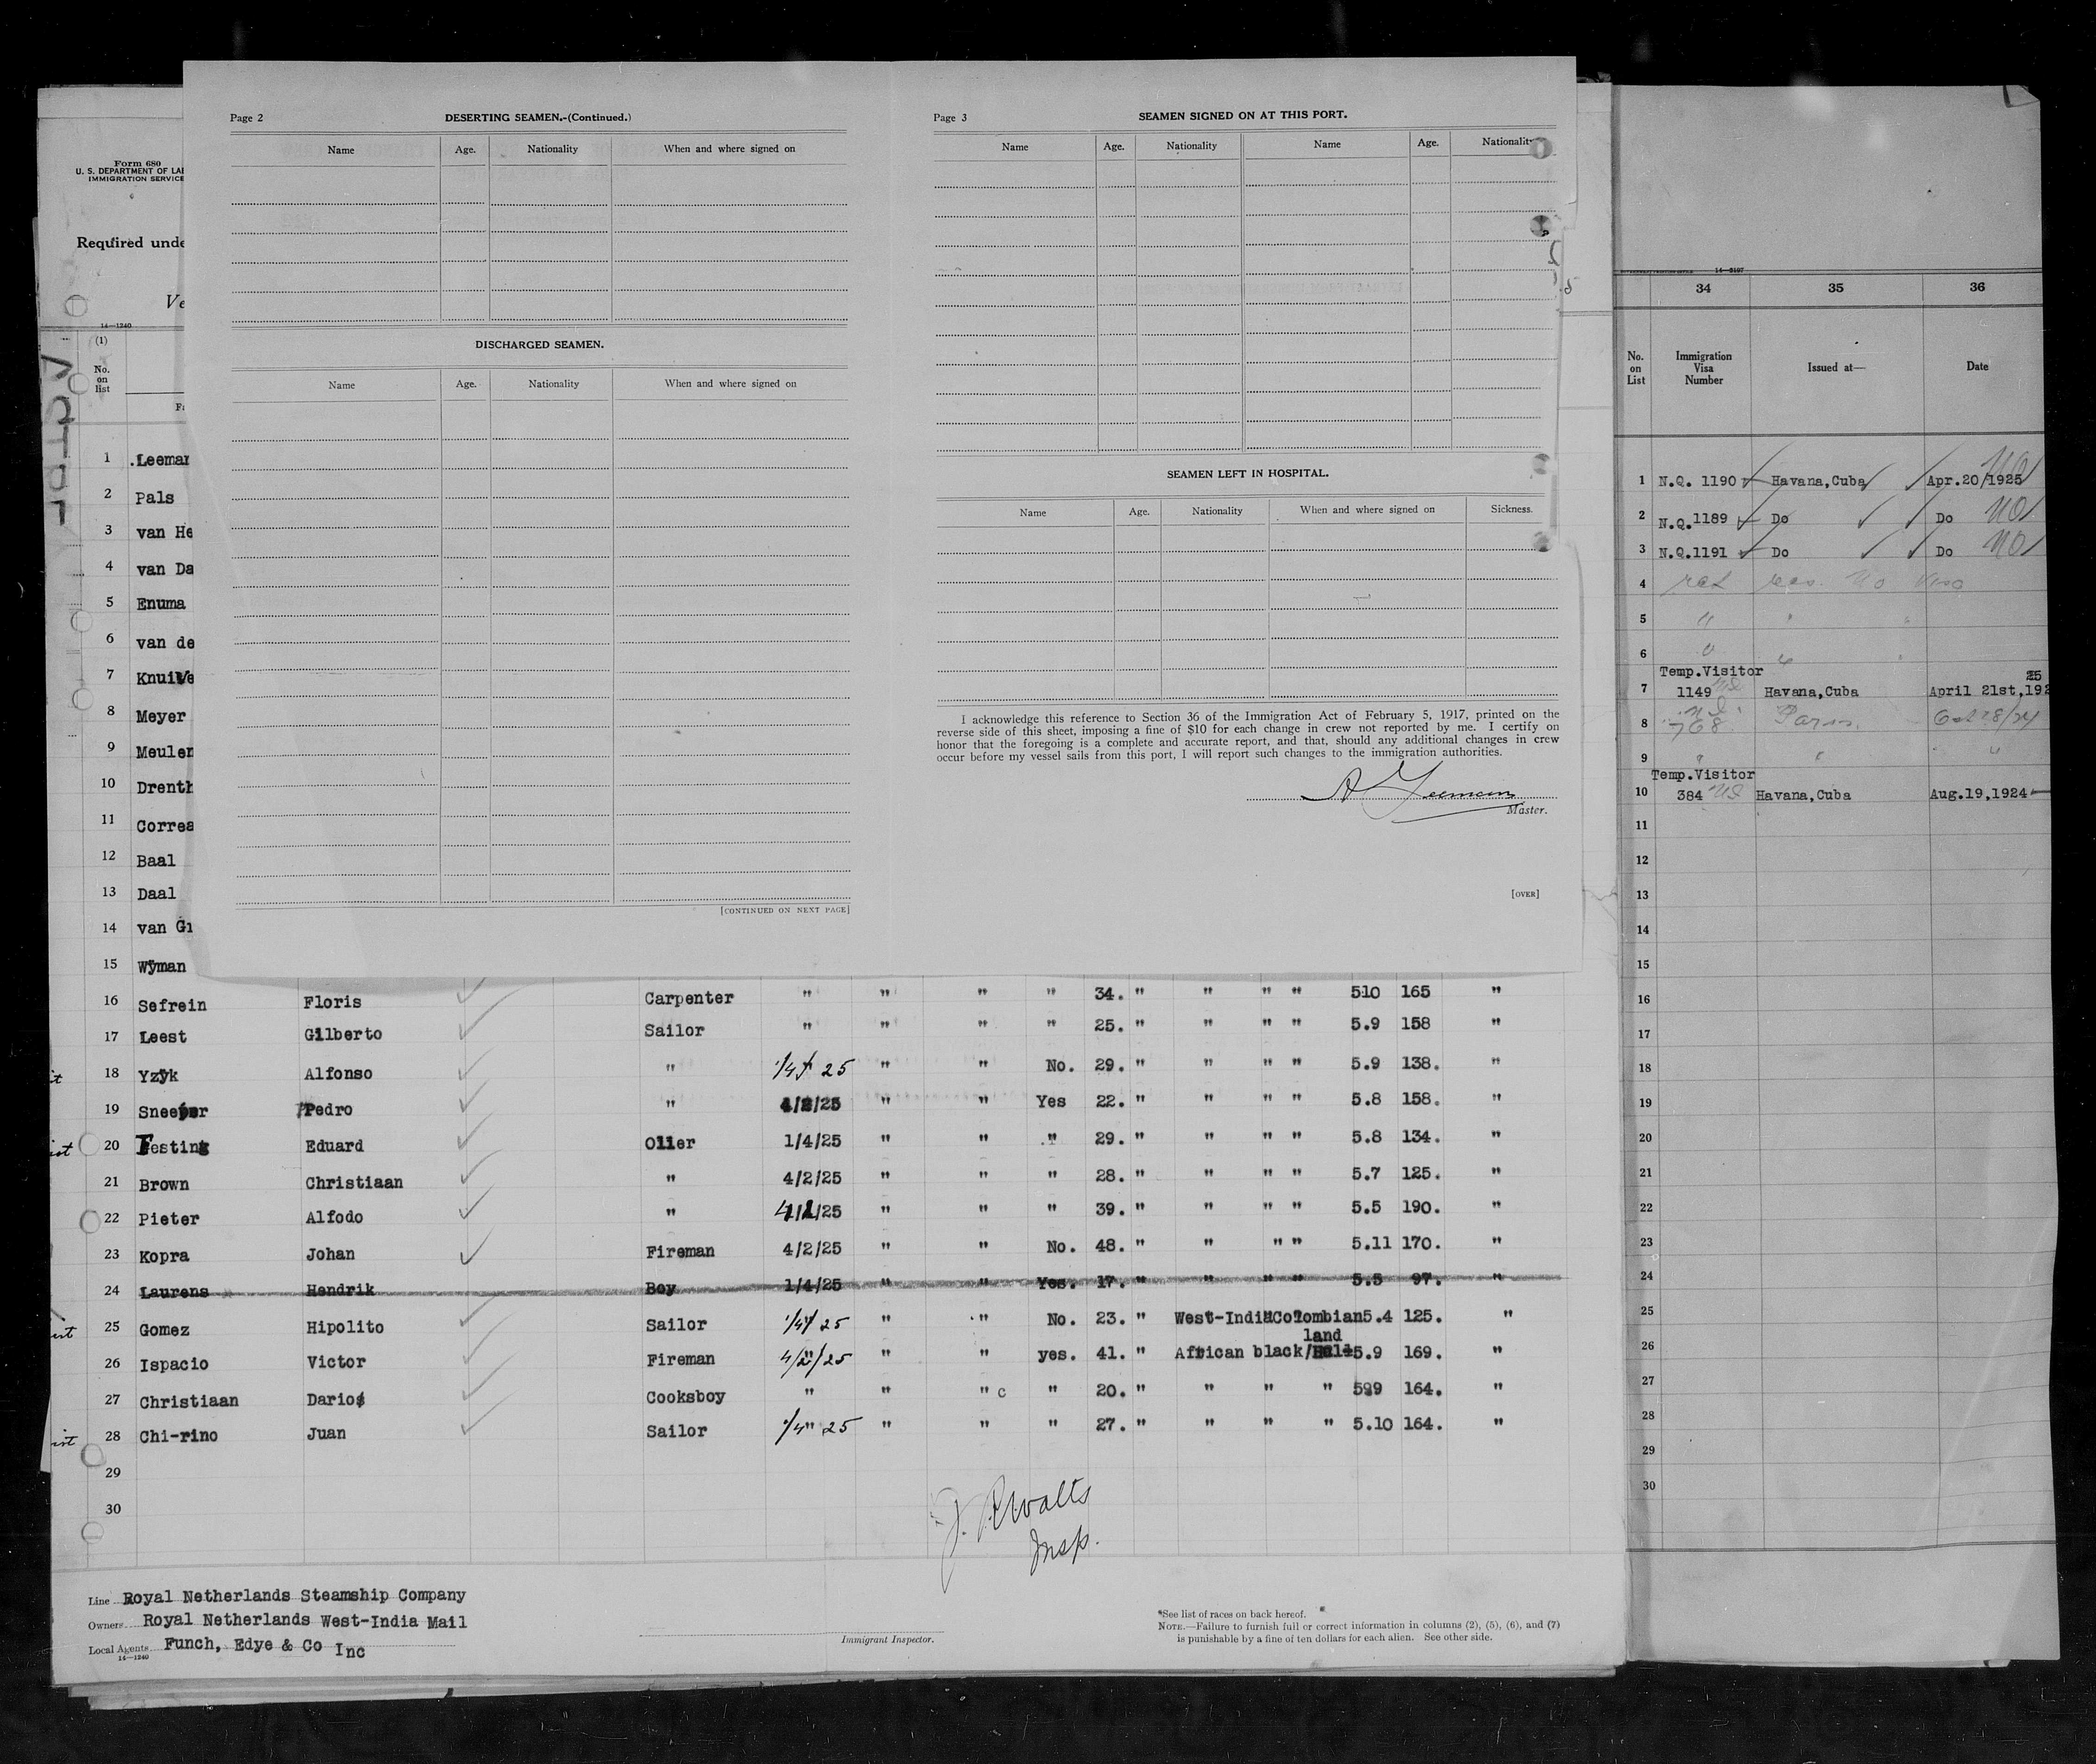 Page 2 DESERTING SEAMEN.-(Continued.)
Name Age. Nationality When and where signed on
DISCHARGED SEAMEN.
Name Age. Nationality When and where signed on
[CONTINUED ON NEXT PAGE]
Page 3 SEAMEN SIGNED ON AT THIS PORT.
Name Age. Nationality Name Age. Nationality
SEAMEN LEFT IN HOSPITAL.
Name Age. Nationality When and where signed on Sickness.
I acknowledge this reference to Section 36 of the Immigration Act of February 5, 1917, printed on the
reverse side of this sheet, imposing a fine of $10 for each change in crew not reported by me. I certify on
honor that the foregoing is a complete and accurate report, and that, should any additional changes in crew
occur before my vessel sails from this port, I will report such changes to the immigration authorities.
A Leeman
Master.
[OVER]
Form 680
U. S. DEPARTMENT OF LA
IMMIGRATION SERVICE
Required unde
Ve
14—1240
(1)
No.
on
list
1 Leeman
2 Pals
3 van He
4 van Da
5 Enuma
6 van de
7 Knuive
8 Meyer
9 Meulen
10 Drenth
11 Correa
12 Baal
13 Daal
14 van Gr
15 Wÿman
16 Sefrein Floris Carpenter " " " " 34. " " " " 510 165 "
17 Leest Gilberto Sailor " " " " 25. " " " " 5.9 158 "
18 Yzÿk Alfonso " 1/4/ 25 " " No. 29. " " " " 5.9 138. "
19 Sneeper Pedro " 4/2/25 " " Yes 22. " " " " 5.8 158. "
20 Testing Eduard Olier 1/4/25 " " " 29. " " " " 5.8 134. "
21 Brown Christiaan " 4/2/25 " " " 28. " " " " 5.7 125. "
22 Pieter Alfodo " /25 " " " 39. " " " " 5.5 190. "
23 Kopra Johan Fireman 4/2/25 " " No. 48. " " " " 5.11 170. "
24 Laurens Hendrik Boy 1/4/25 " " Yes. 17. " " " " 5.5 97. "
25 Gomez Hipolito Sailor 1/4/ 25 " " No. 23. " West-India Colombian 5.4 125. "
land
26 Ispacio Victor Fireman 4/2/25 " " yes. 41. " African black/ 5.9 169. "
27 Christiaan Darios Cooksboy " " " c " 20. " " " " 599 164. "
28 Chi-rino Juan Sailor 1/4" 25 " " " 27. " " " " 5.10 164. "
29
30
J. P. Watts
Insp.
Line Royal Netherlands Steamship Company
Owners Royal Netherlands West-India Mail
Local Agents Funch, Edye & Co Inc
14—1240
Immigrant Inspector.
*See list of races on back hereof.
NOTE.—Failure to furnish full or correct information in columns (2), (5), (6), and (7)
is punishable by a fine of ten dollars for each alien. See other side.
14—3107
34 35 36
No.
on
List
Immigration
Visa
Number
Issued at—
Date
1 N.Q. 1190 Havana,Cuba Apr.20/1925 NO
2 N.Q.1189 Do Do NO
3 N.Q.1191 Do Do NO
4 No Visa
5 "
6 "
Temp.Visitor 25
7 1149 Havana,Cuba April 21st,192
8 768 Paris Oct 28/24
9 " " "
Temp.Visitor
10 384 Havana,Cuba Aug.19,1924
11
12
13
14
15
16
17
18
19
20
21
22
23
24
25
26
27
28
29
30